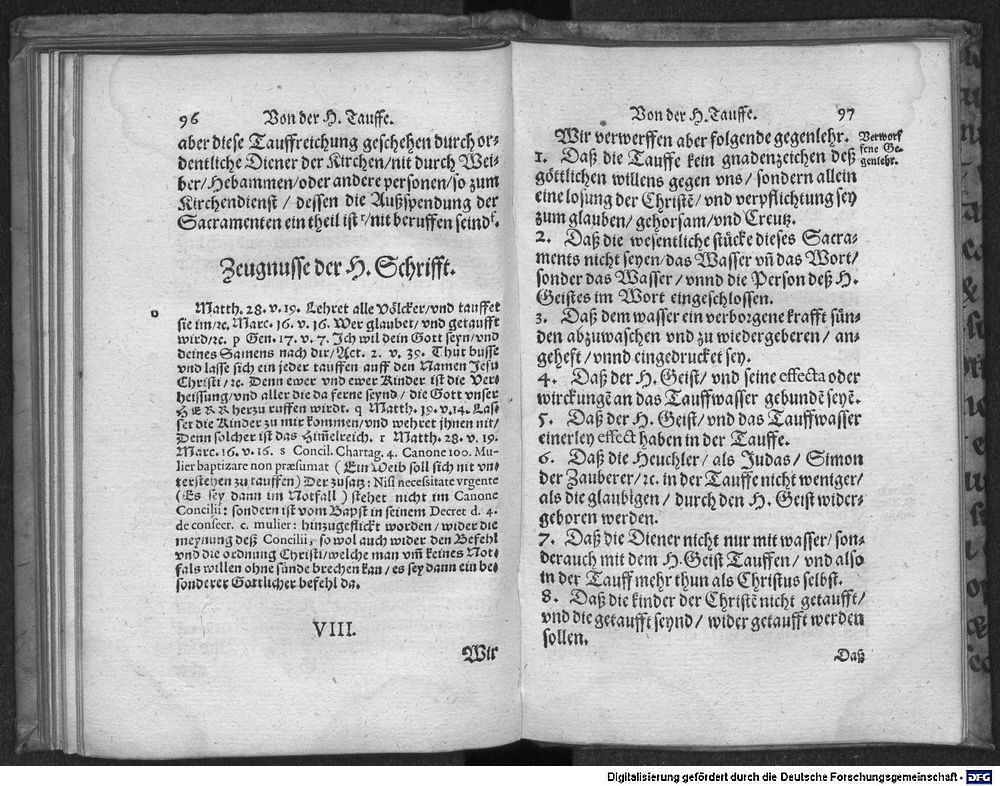 96 Von der H. Tauffe.
aber diese Tauffreichung geschehen durch or⸗
dentliche Diener der Kirchen/nit durch Wei⸗
ber/Hebammen/oder andere personen/so zum
Kirchendienst/ dessen die Außspendung der
Sacramenten ein theil ist r/nit beruffen seind s.
Zeugnusse der H. Schrifft.
o Matth. 28. v. 19. Lehret alle Völcker/vnd tauffet
sie im/ꝛc. Marc. 16. v. 16. Wer glaubet/ vnd getaufft
wird/ꝛc. p Gen. 17. v. 7. Ich wil dein Gott seyn/vnd
deines Samens nach dir/Act. 2. v. 39. Thut busse
vnd lasse sich ein jeder tauffen auff den Namen Jesu
Christi/ ꝛc. Denn ewer vnd ewer Kinder ist die Ver⸗
heissung/vnd aller die da ferne seynd/ die Gott vnser
HERR herzu ruffen wirdt. q Matth. 19. v. 14. Las⸗
set die Kinder zu mir kommen/vnd wehret jhnen nit/
Denn solcher ist das Him̃elreich. r Matth. 28. v. 19.
Marc. 16. v. 16. s Concil. Chartag. 4. Canone 100. Mu-
lier baptizare non præsumat (Ein Weib soll sich nit vn⸗
terstehen zu tauffen) Der zusatz: Nisi necessitate vrgente
(Es sey dann im Notfall) stehet nicht im Canone
Concilii: sondern ist vom Bapst in seinem Decret d. 4.
de consecr. c. mulier: hinzugeflickt worden/ wider die
meynung deß Concilii, so wol auch wider den Befehl
vnd die ordnung Christi/welche man vm̃ keines Not⸗
fals willen ohne sünde brechen kan/ es sey dann ein be⸗
sonderer Göttlicher befehl da.
VIII.
Wir
Von der H. Tauffe. 97
Wir verwerffen aber folgende gegenlehr.
Verworf
fene Ge⸗
genlehr.
1. Daß die Tauffe kein gnadenzeichen deß
göttlichen willens gegen vns/ sondern allein
eine losung der Christē/ vnd verpflichtung sey
zum glauben/ gehorsam/vnd Creutz.
2. Daß die wesentliche stücke dieses Sacra⸗
ments nicht seyen/das Wasser vñ das Wort/
sonder das Wasser/ vnnd die Person deß H.
Geistes im Wort eingeschlossen.
3. Daß dem wasser ein verborgene krafft sün⸗
den abzuwaschen vnd zu wiedergeberen/ an⸗
geheft/ vnnd eingedrucket sey.
4. Daß der H. Geist/ vnd seine effecta oder
wirckungē an das Tauffwasser gebundē seyē.
5. Daß der H. Geist/ vnd das Tauffwasser
einerley effect haben in der Tauffe.
6. Daß die Heuchler/ als Judas/ Simon
der Zauberer/ꝛc. in der Tauffe nicht weniger/
als die glaubigen/ durch den H. Geist wider⸗
geboren werden.
7. Daß die Diener nicht nur mit wasser/ son⸗
der auch mit dem H. Geist Tauffen/ vnd also
in der Tauff mehr thun als Christus selbst.
8. Daß die kinder der Christē nicht getaufft/
vnd die getaufft seynd/ wider getaufft werden
sollen.
Daß
Digitalisierung gefördert durch die Deutsche Forschungsgemeinschaft - DFG